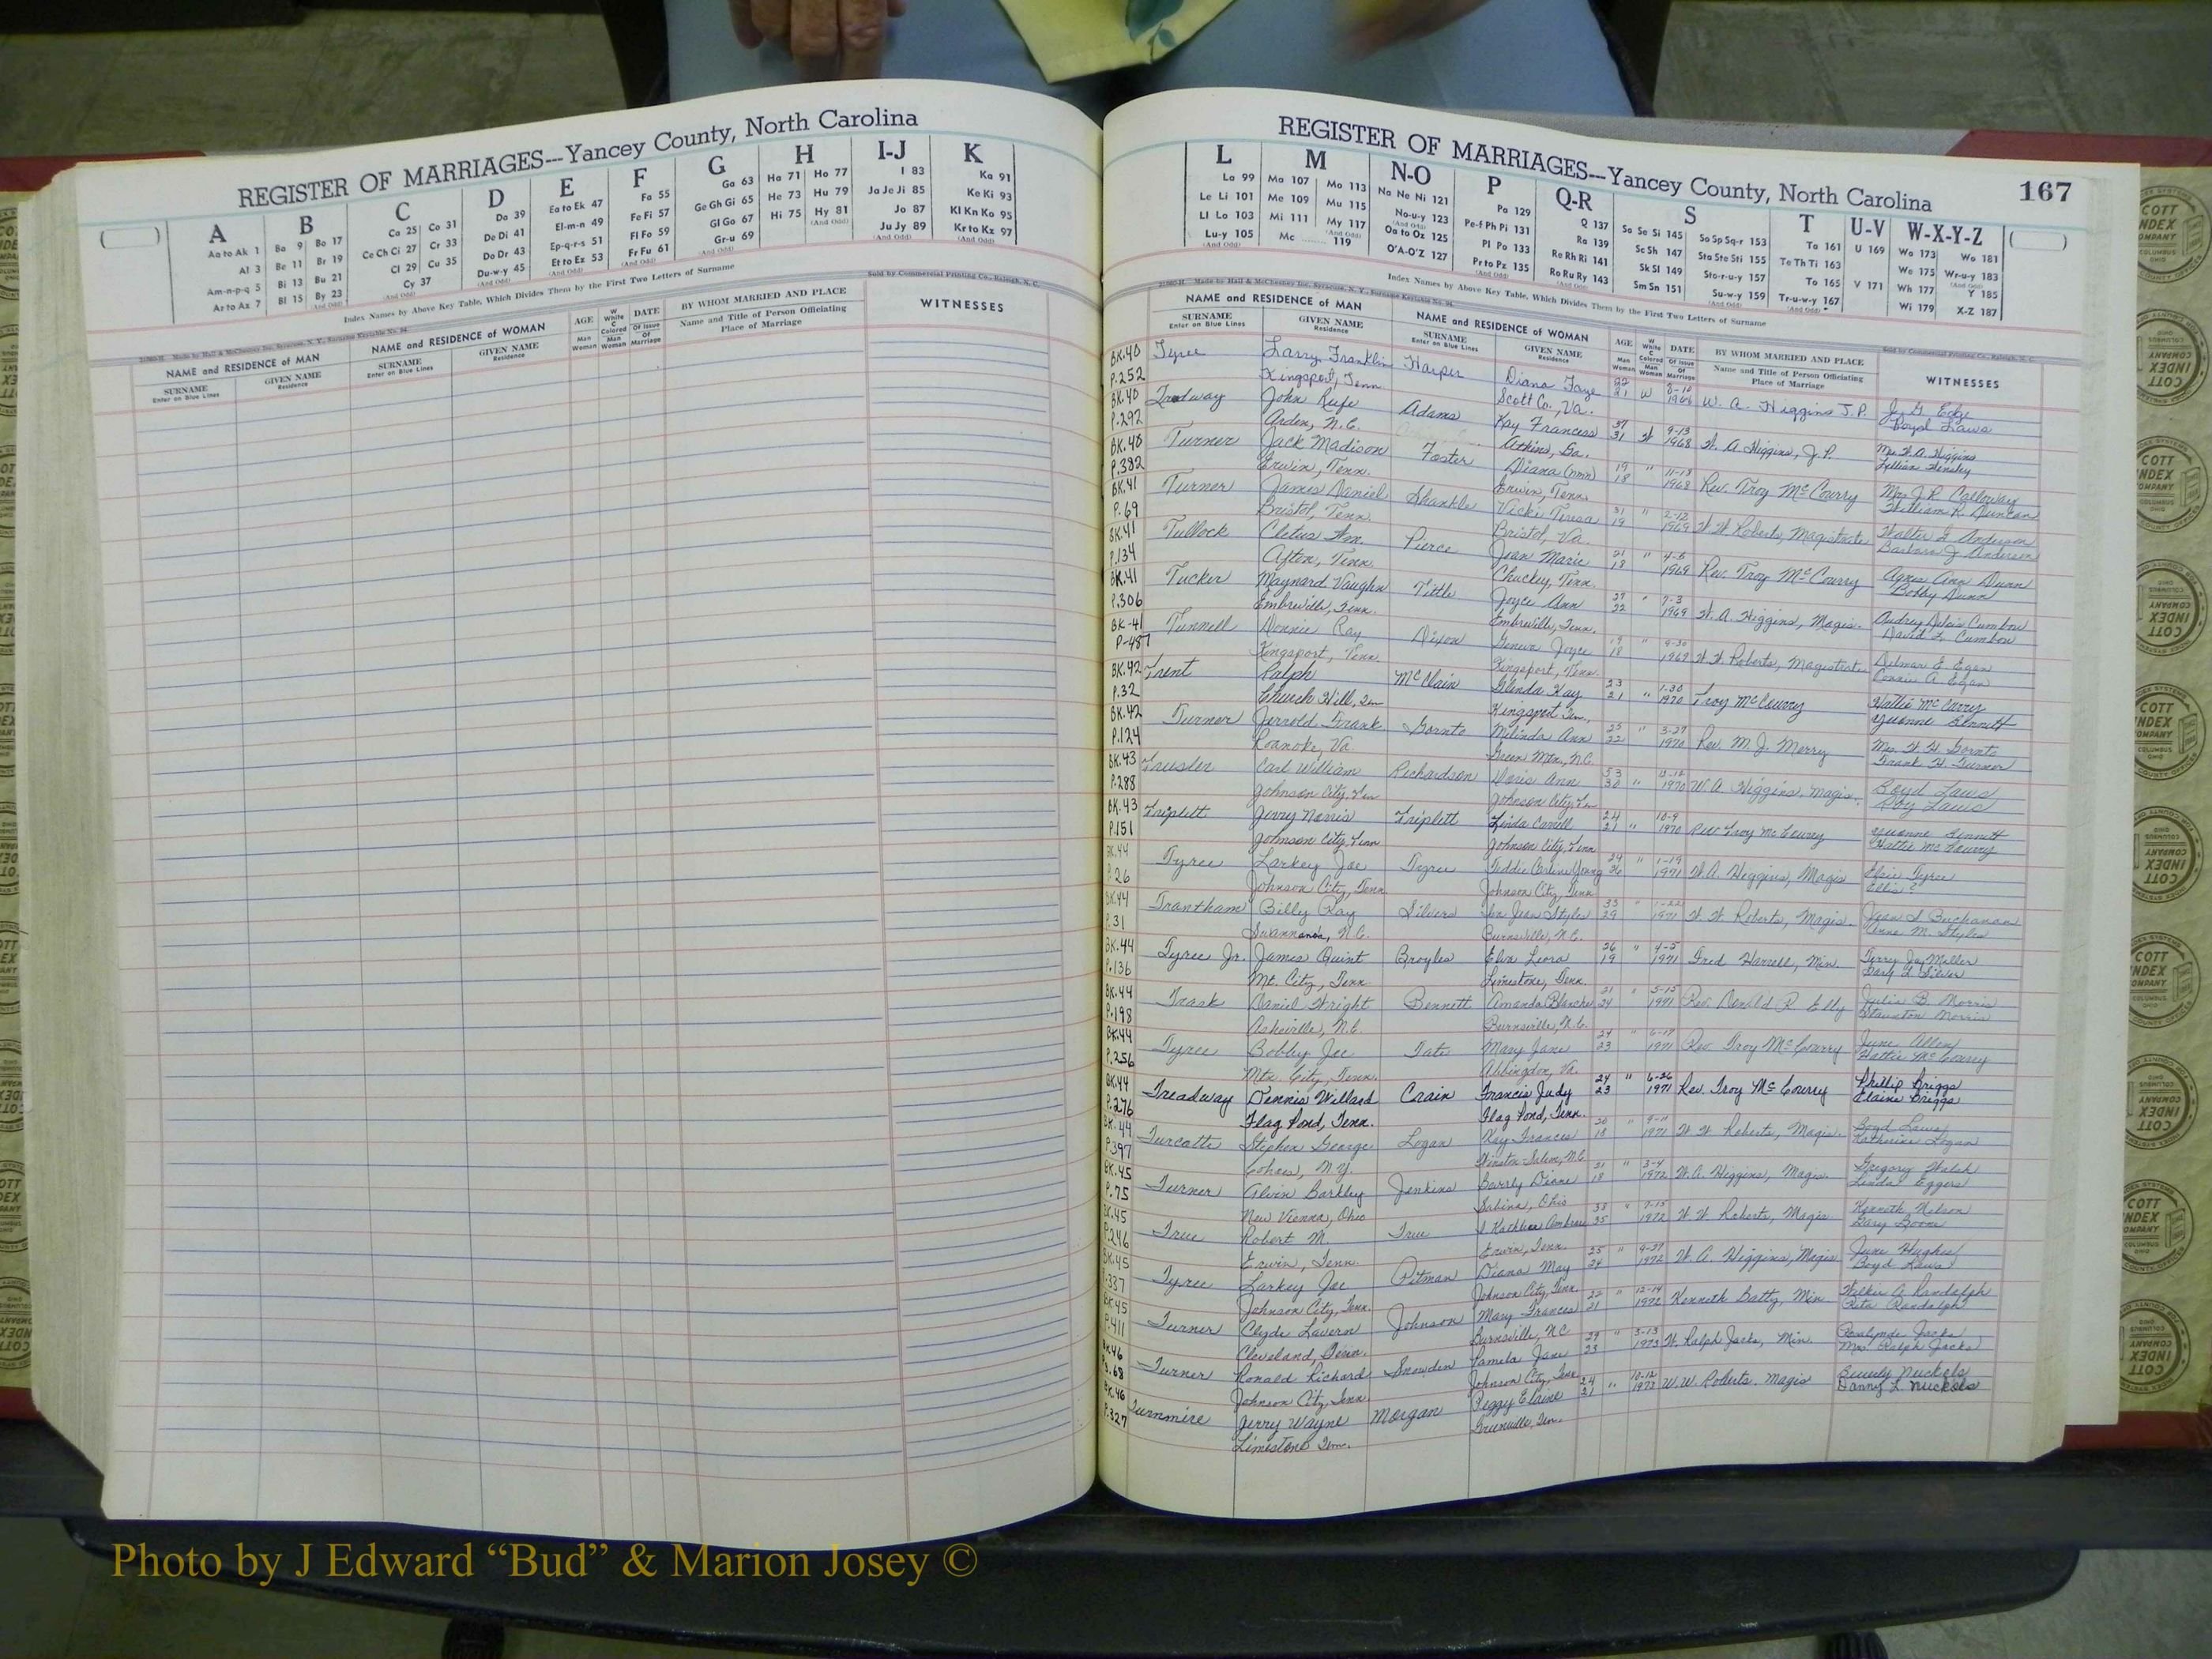 REGISTER OF MARRIAGES---Yancey County, North Carolina
A B C D E F G H I-J K
Aa to Ak 1 Ba 9 Bo 17 Ca 25 Co 31 Da 39 Ea to Ek 47 Fa 55 Ga 63 Ha 71 Ho 77 I 83 Ka 91
Al 3 Be 11 Br 19 Ce Ch Ci 27 Cr 33 De Di 41 El-m-n 49 Fe Fi 57 Ge Gh Gi 65 He 73 Hu 79 Ja Je Ji 85 Ke Ki 93
Am-n-p-q 5 Bi 13 Bu 21 Cl 29 Cu 35 Do Dr 43 Ep-q-r-s 51 Fl Fo 59 Gl Go 67 Hi 75 Hy 81 Jo 87 Kl Kn Ko 95
Ar to Az 7 Bl 15 By 23 Cy 37 Du-w-y 45 Et to Ez 53 Fr Fu 61 Gr-u 69 Ju Jy 89 Kr to Kz 97
Index Names by Above Key Table, Which Divides Them by the First Two Letters of Surname
Sold by Commercial Printing Co., Raleigh, N. C.
NAME and RESIDENCE of MAN NAME and RESIDENCE of WOMAN AGE DATE BY WHOM MARRIED AND PLACE WITNESSES
SURNAME Enter on Blue Lines GIVEN NAME Residence SURNAME Enter on Blue Lines GIVEN NAME Residence Man Woman W White C Colored Man Woman Of Issue Of Marriage Name and Title of Person Officiating Place of Marriage
REGISTER OF MARRIAGES---Yancey County, North Carolina 167
L M N-O P Q-R S T U-V W-X-Y-Z
La 99 Ma 107 Mo 113 Na Ne Ni 121 Pa 129 Q 137 Sa Se Si 145 So Sp Sq-r 153 Ta 161 U 169 Wa 173 Wo 181
Le Li 101 Me 109 Mu 115 No-u-y 123 Pe-f Ph Pi 131 Ra 139 Sc Sh 147 Sta Ste Sti 155 Te Th Ti 163 We 175 Wr-u-y 183
Ll Lo 103 Mi 111 My 117 Oa to Oz 125 Pl Po 133 Re Rh Ri 141 Sk Sl 149 Sto-r-u-y 157 To 165 V 171 Wh 177 Y 185
Lu-y 105 Mc 119 O'A-O'Z 127 Pr to Pz 135 Ro Ru Ry 143 Sm Sn 151 Su-w-y 159 Tr-u-w-y 167 Wi 179 X-Z 187
Index Names by Above Key Table, Which Divides Them by the First Two Letters of Surname
NAME and RESIDENCE of MAN NAME and RESIDENCE of WOMAN AGE DATE BY WHOM MARRIED AND PLACE WITNESSES
SURNAME Enter on Blue Lines GIVEN NAME Residence SURNAME Enter on Blue Lines GIVEN NAME Residence Name and Title of Person Officiating Place of Marriage
BK.40 Tyree Larry Franklin Harper Diana Faye 21 W W. A. Higgins J.P. J. G. Edge
P.252 Kingsport, Tenn. Scott Co., Va. 1968 Boyd Laws
BK.40 John Rufe Adams Kay Frances 37 9-13 W. A. Higgins, J.P. Mrs. W. A. Higgins
P.292 Arden, N.C. Atkins, Ga. 31 1968 Lillian Hensley
BK.40 Turner Jack Madison Foster Diana (nmn) 19 " 11-18 Rev. Troy McCourry Mrs. J. R. Calloway
P.382 Erwin, Tenn. Erwin, Tenn. 18 1968 William R. Duncan
BK.41 Turner James Daniel Shankle Vickie Teresa 31 " 2-12 W. W. Roberts, Magistrate Walter G. Anderson
P.69 Bristol, Tenn. Bristol, Va. 19 1969 Barbara J. Anderson
BK.41 Tullock Cletus Wm. Pierce Joan Marie 21 " 4-5 Rev. Troy McCourry Agnes Ann Dunn
P.134 Afton, Tenn. Chuckey, Tenn. 18 1969 Bobby Dunn
BK.41 Tucker Maynard Vaughn Tittle Joyce Ann 27 " 7-3 W. A. Higgins, Magis. Audrey Cumbow
P.306 Embreville, Tenn. Embreville, Tenn. 22 1969 David L. Cumbow
BK-41 Tunnell Donnie Ray Dixon Geneva Joyce 19 " 9-30 W. W. Roberts, Magistrate Delmar E. Egan
P-487 Kingsport, Tenn. Kingsport, Tenn. 18 1969 Connie A. Egan
BK.42 Trent Ralph McClain Glenda Kay 23 " 1-30 Troy McCourry Hattie McCurry
P.32 Church Hill, Ten Kingsport Ten. 21 1970 Yvonne Bennett
BK.42 Turner Jerrold Frank Gornto Melinda Ann 25 " 3-27 Rev. M. J. Merry Mrs. W. H. Gornto
P.124 Roanoke, Va. Green Mtn., N.C. 22 1970 Frank H. Turner
BK.43 Carl William Richardson Doris Ann 53 " 1970 W. A. Higgins, Magis. Boyd Laws
P.288 Johnson City, Ten Johnson City, Ten 30 Roy Laws
BK.43 Triplett Jerry Norris Triplett Linda 24 " 10-9 Rev. Troy McCourry Yvonne Bennett
P.151 Johnson City, Tenn Johnson City, Tenn 21 1970 Hattie McCourry
BK.44 Tyree Larkey Joe Tyree Young 24 " 1-19 W. A. Higgins, Magis Elsie Tyree
P.26 Johnson City, Tenn. Johnson City, Tenn. 26 1971 Ellis ?
BK.44 Trantham Billy Ray Silvers Jean Styles 33 " 1-22 W. W. Roberts, Magis. Jean S. Buchanan
P.31 Swannanoa, N.C. Burnsville, N.C. 29 1971 Anne M. Styles
BK.44 Tyree Jr. James Quint Broyles Elva Leora 26 " 4-5 Fred Harrell, Min. Terry Jay Miller
P.136 Mt. City, Tenn Limestone, Tenn. 19 1971 Gary L. Silver
BK.44 Trask Daniel Wright Bennett Amanda Blanche 21 " 5-15 Rev. Donald R. Julia B. Morris
P.198 Asheville, N.C. Burnsville, N.C. 24 1971 Staunton Morris
BK.44 Tyree Bobby Joe Tate Mary Jane 24 " 6-19 Rev. Troy McCourry June Allen
P.256 Mtn. City, Tenn. Abbingdon, Va. 23 1971 Hattie McCourry
BK.44 Treadway Dennis Willard Crain Francis Judy 24 " 6-26 Rev. Troy McCourry Phillip Briggs
P.276 Flag Pond, Tenn. Flag Pond, Tenn. 23 1971 Elaine Briggs
BK.44 Turcotte Stephen George Logan Kay Frances 20 " 9-11 W. W. Roberts, Magis. Boyd Laws
P.397 Cohoes, N.Y. Winston Salem, N.C. 18 1971 Katherine Logan
BK.45 Turner Alvin Barkley Jenkins Beverly Diane 21 " 3-4 W. A. Higgins, Magis. Gregory Walsh
P.75 New Vienna, Ohio Sabina, Ohio 18 1972 Linda Eggers
BK.45 True Robert M. True Kathleen Ambrose 38 " 7-15 W. W. Roberts, Magis Kenneth Nelson
P.246 Erwin, Tenn. Erwin, Tenn. 35 1972 Gary Boone
BK.45 Tyree Larkey Joe Pitman Diana May 25 " 9-27 W. A. Higgins, Magis June Hughes
P.337 Johnson City, Tenn. Johnson City, Tenn. 24 1972 Boyd Laws
BK.45 Turner Clyde Lavern Johnson Mary Frances 22 " 12-14 Kenneth Batty, Min Wilkie A. Randolph
P.411 Cleveland, Tenn. Burnsville, NC 21 1972 Rita Randolph
BK.46 Turner Ronald Richard Snowden Pamela Jane 29 " 3-13 W. Ralph Jacks, Min. Rosalynde Jacks
P.68 Johnson City, Tenn. Johnson City, Tenn 23 1973 Mrs. Ralph Jacks
BK.46 Turnmire Jerry Wayne Morgan Peggy Elaine 24 " 10-12 W. W. Roberts. Magis Beverly Nuckols
P.327 Limestone Tenn. Greenville, Ten. 21 1973 Danny L. Nuckols
Photo by J Edward “Bud” & Marion Josey ©